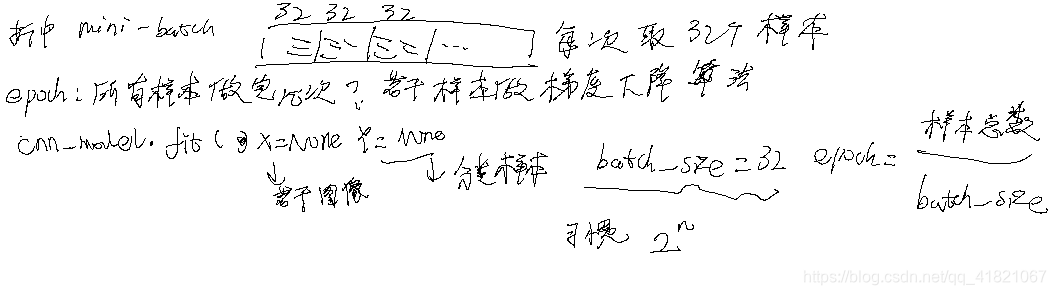 32 32 32
折中 mini-batch 三 三 三 ... 每次取32个样本
epoch: 所有样本做完几次? 若干样本做梯度下降算法
cnn_model.fit( x=None Y=None
若干图像 分类样本 batch_size=32 epoch= 样本总数
batch_size
习惯 2^n
https://blog.csdn.net/qq_41821067